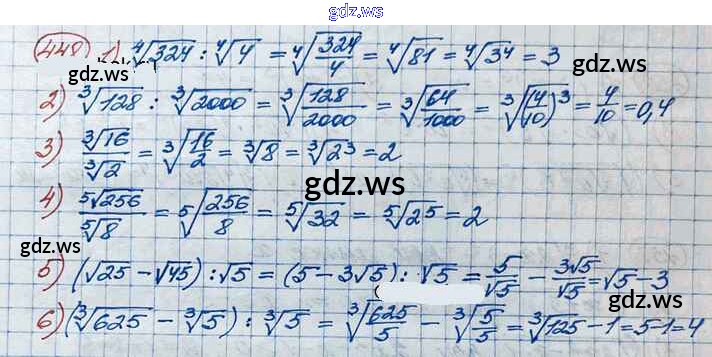 gdz.ws
448) 1) ⁴√324 : ⁴√4 = ⁴√(324/4) = ⁴√81 = ⁴√3⁴ = 3
gdz.ws
2) ³√128 : ³√2000 = ³√(128/2000) = ³√(64/1000) = ³√(4/10)³ = 4/10 = 0,4
3) ³√16/³√2 = ³√(16/2) = ³√8 = ³√2³ = 2
gdz.ws
4) ⁵√256/⁵√8 = ⁵√(256/8) = ⁵√32 = ⁵√2⁵ = 2
gdz.ws
5) (√25 - √45) : √5 = (5 - 3√5) : √5 = 5/√5 - 3√5/√5 = √5 - 3
6) (³√625 - ³√5) : ³√5 = ³√(625/5) - ³√(5/5) = ³√125 - 1 = 5-1 = 4
gdz.ws